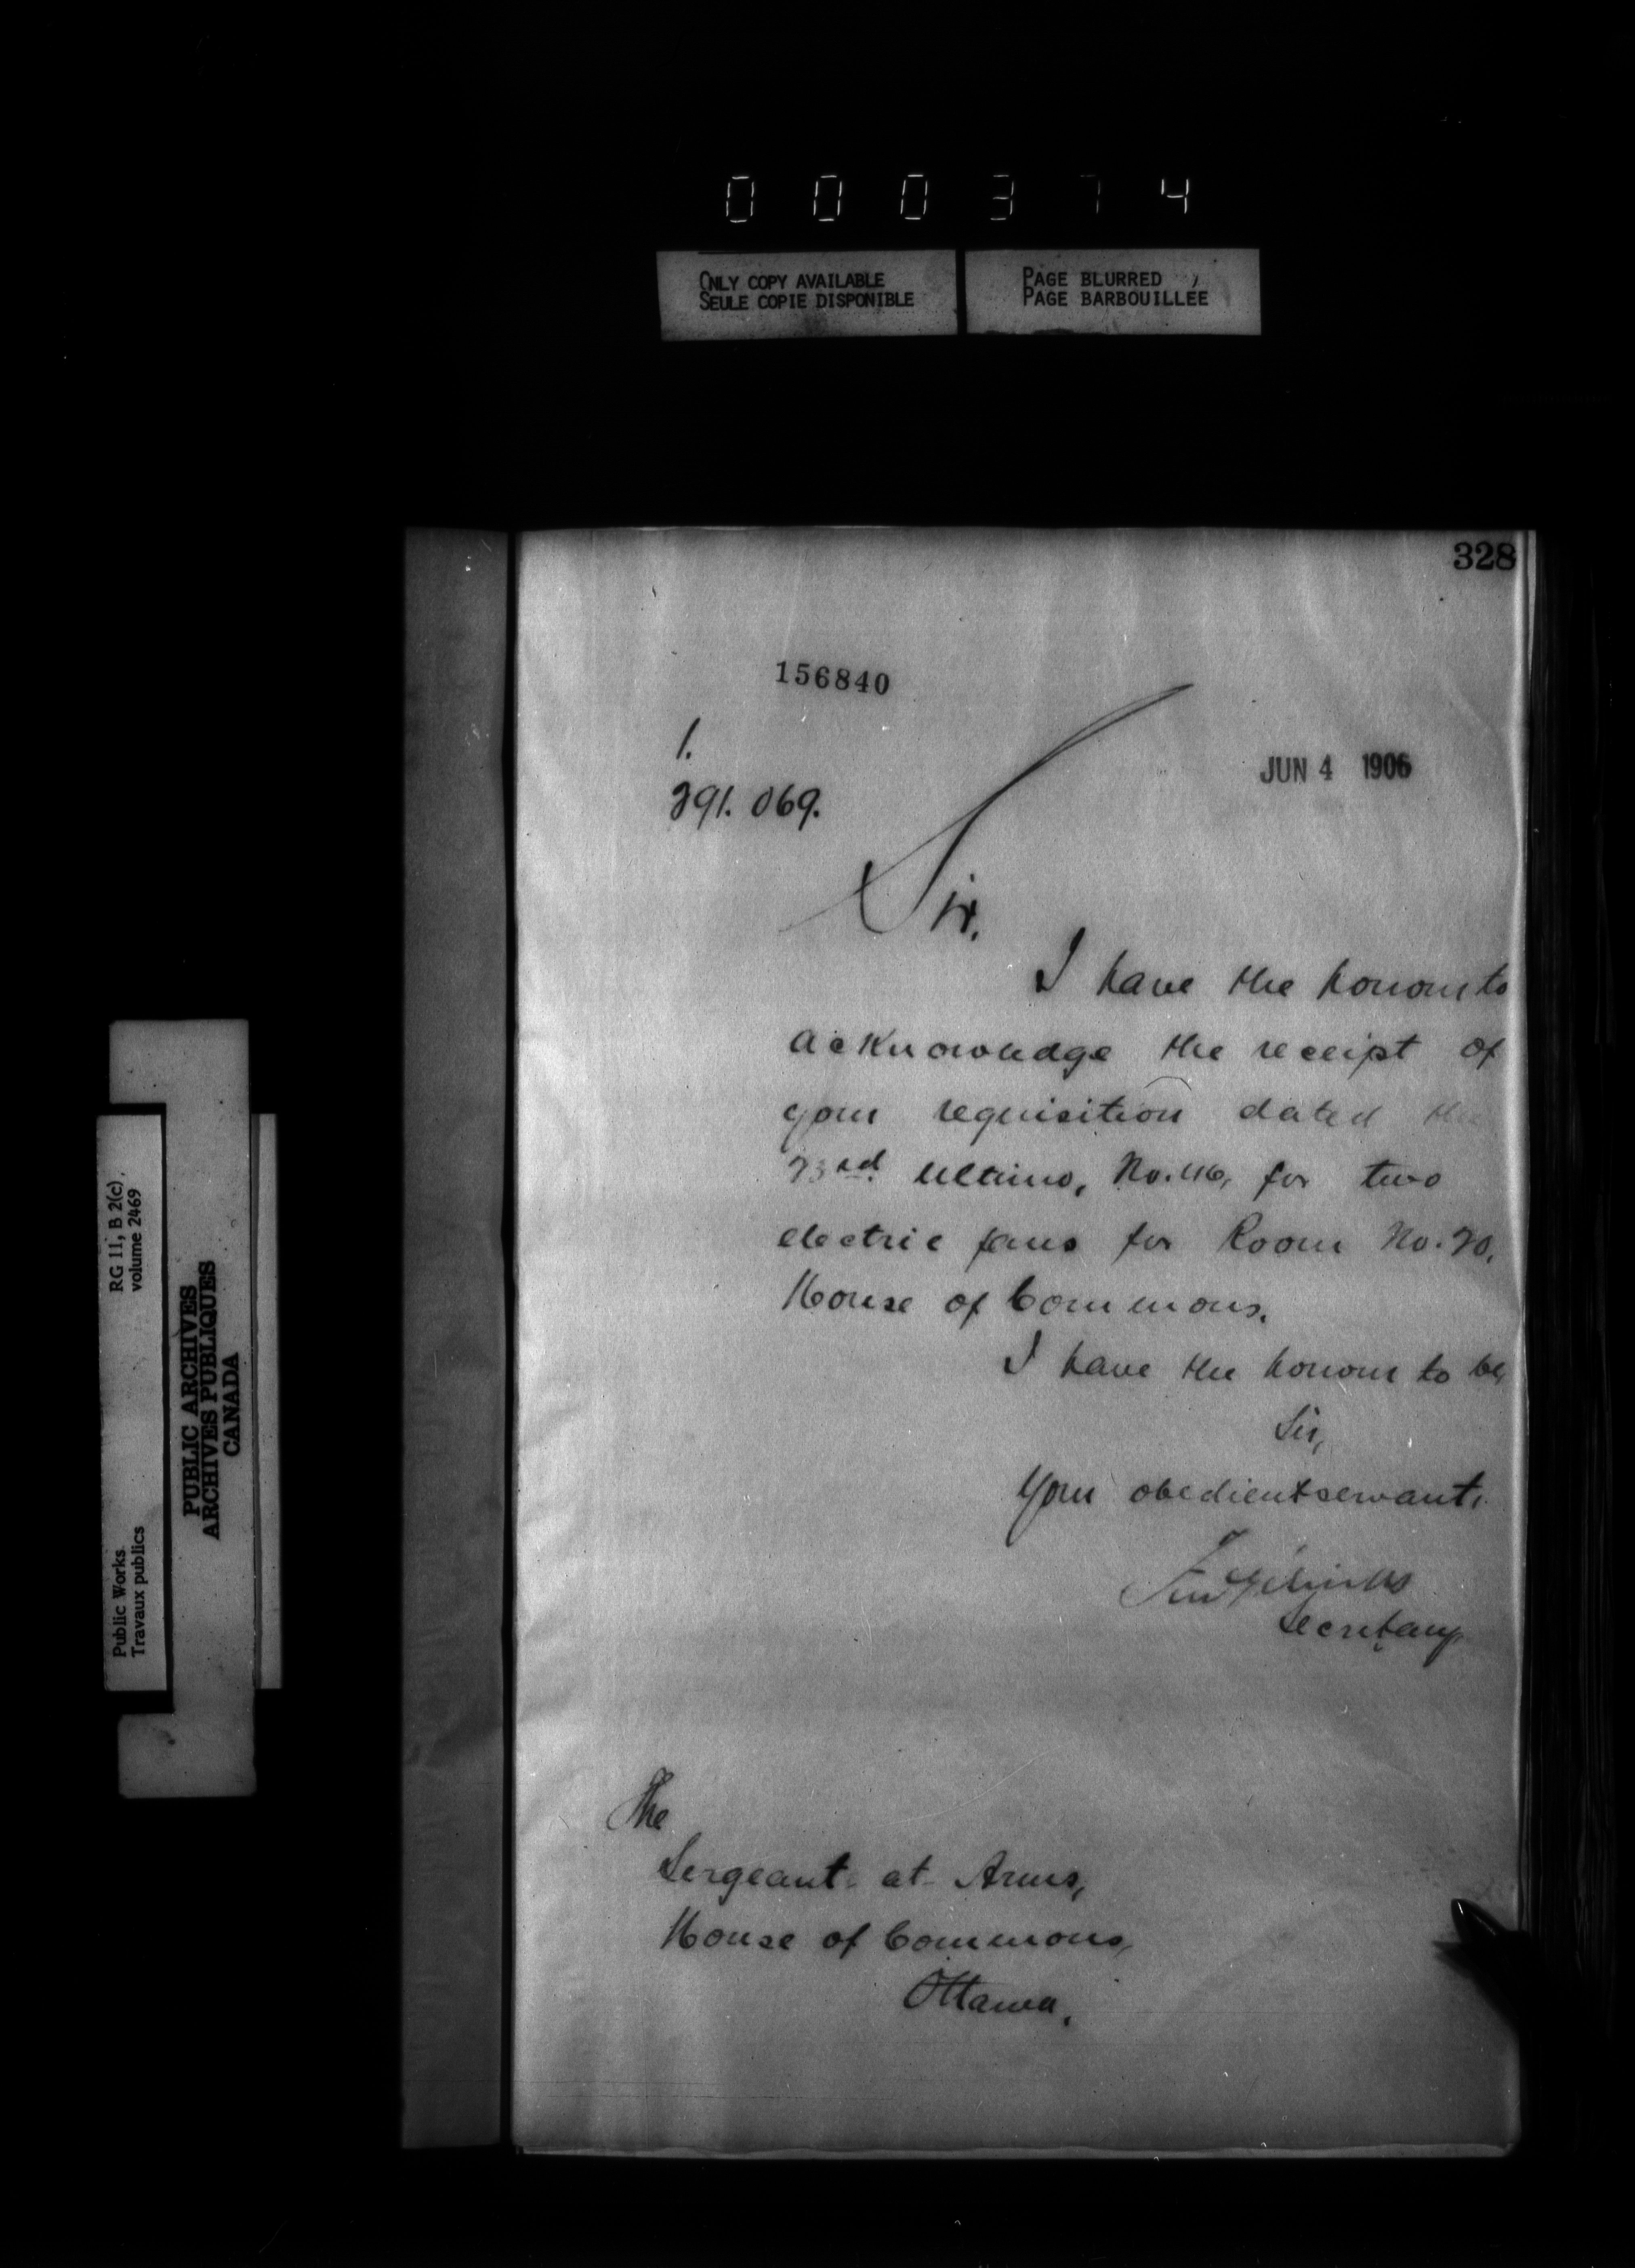 000374
ONLY COPY AVAILABLE
SEULE COPIE DISPONIBLE
PAGE BLURRED
PAGE BARBOUILLEE
328
156840
JUN 4 1906
1.
291.069.
Sir.
I have the honour to
acknowledge the receipt of
your requisition dated the
23rd ultimo, No. 46, for two
electric fans for Room No. 20,
House of Commons.
I have the honour to be,
Sir,
Your obedient servant,
Secretary
The
Sergeant-at-Arms,
House of Commons,
Ottawa.
RG 11, B 2(c)
volume 2469
Public Works
Travaux publics
PUBLIC ARCHIVES
ARCHIVES PUBLIQUES
CANADA